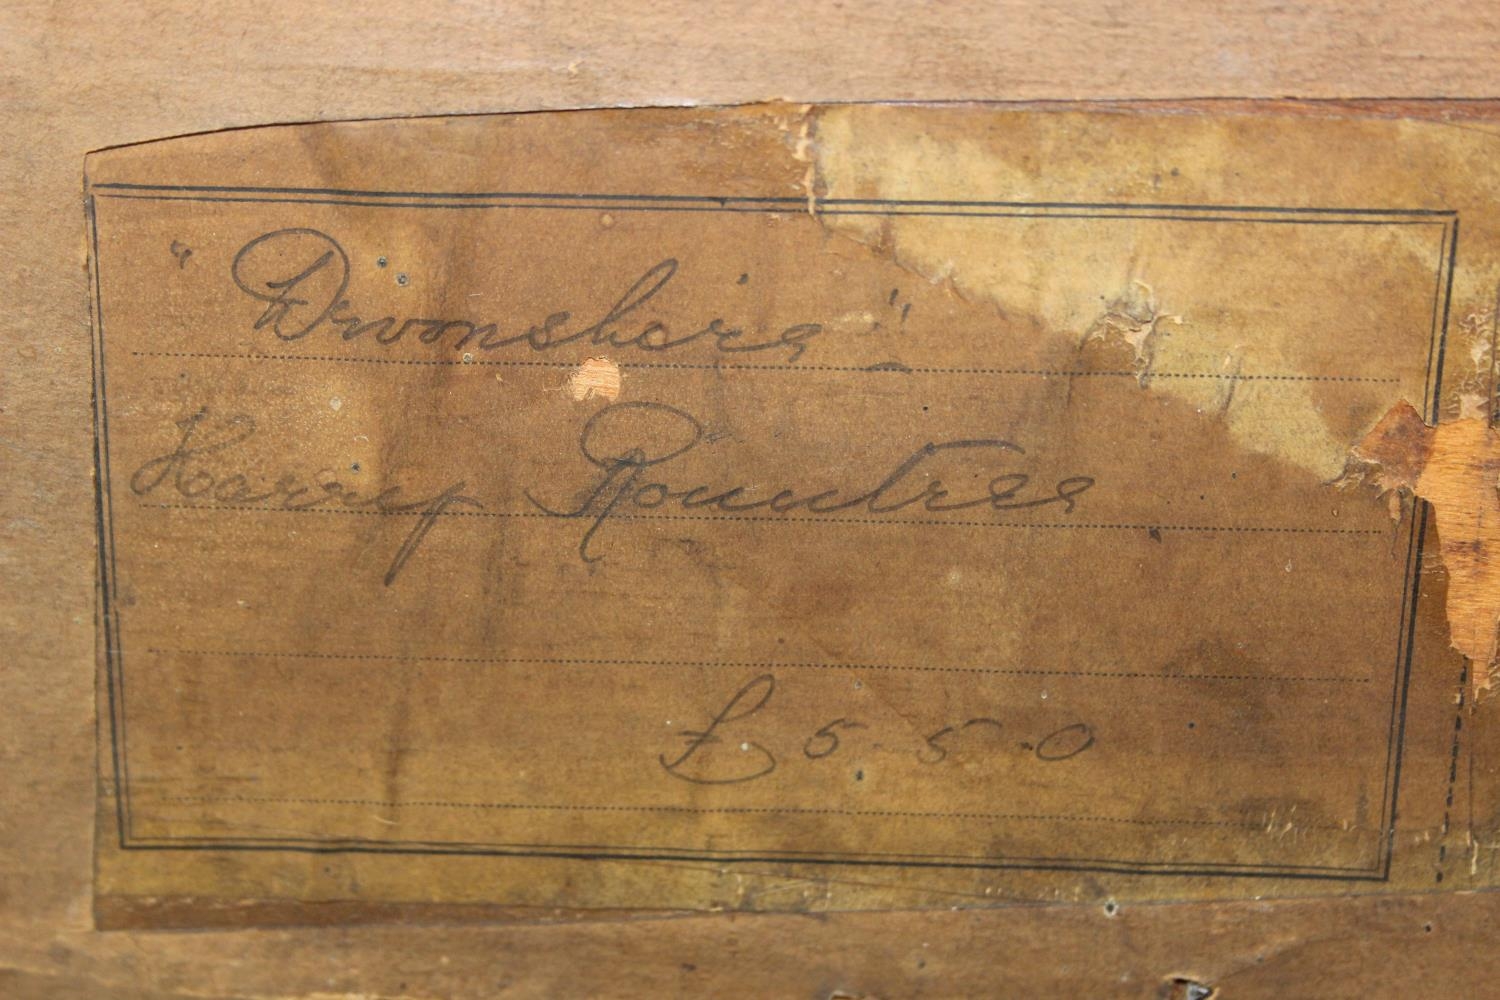 "Devonshire"
Harry Rountree
£5-5-0